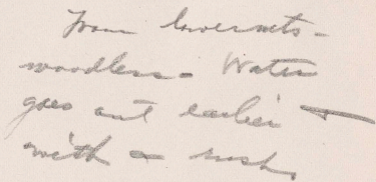 From
woodless - Water
goes out earlier +
with a rush.